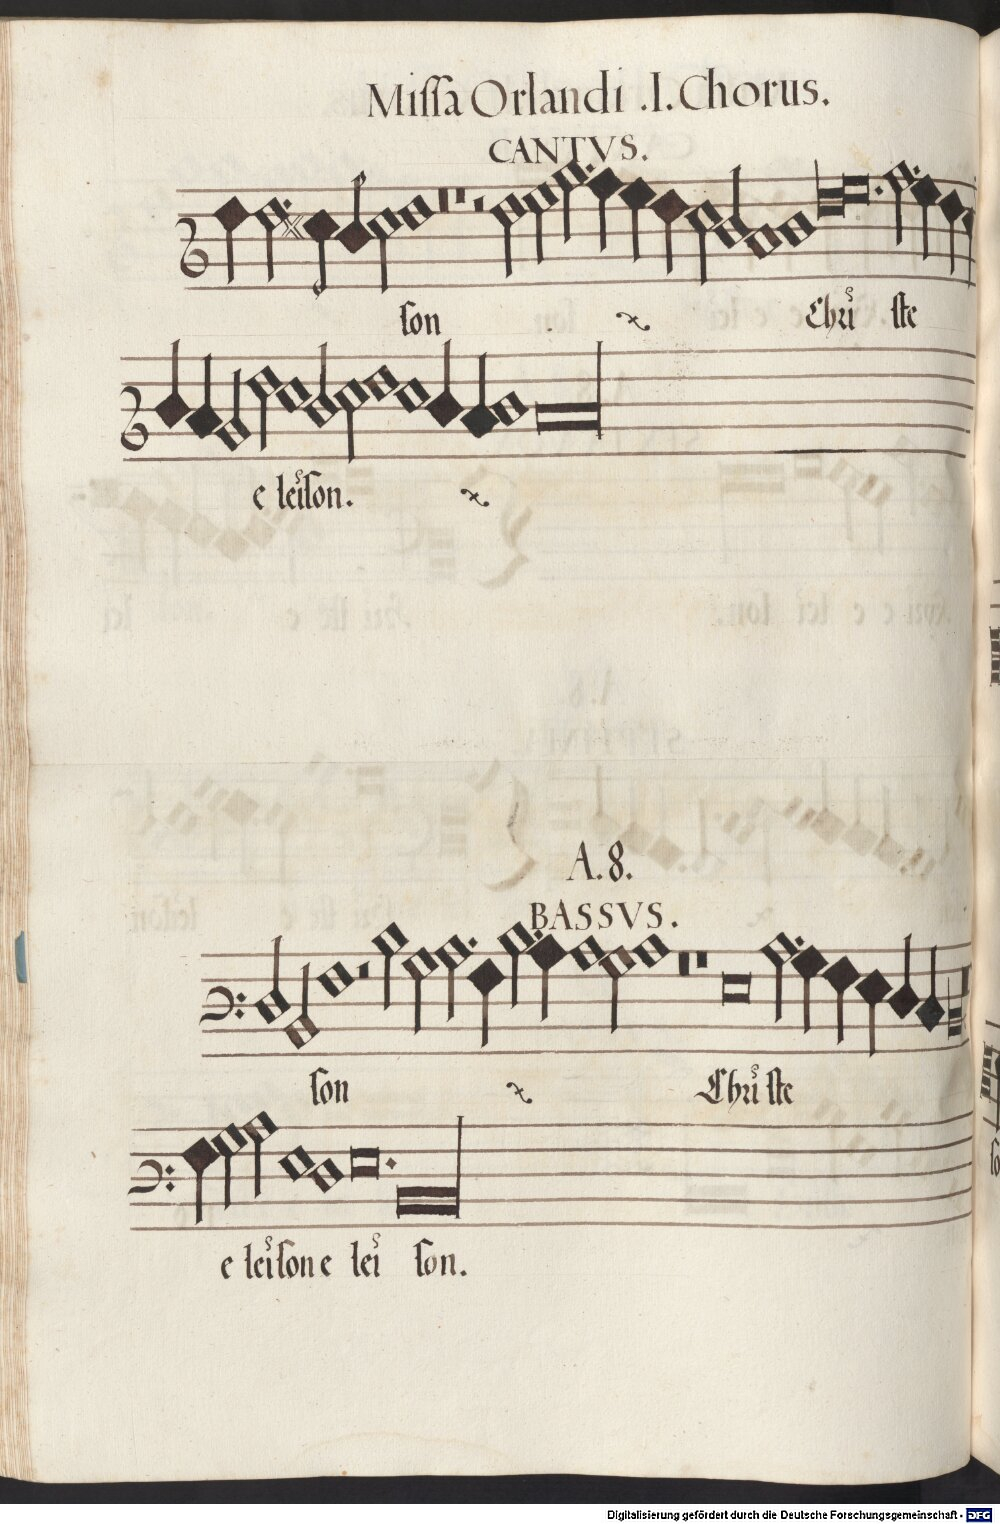 Missa Orlandi .I. Chorus.
CANTVS.
son Chri ste
e leison.
A. 8.
BASSVS.
son Chri ste
e leison e lei son.
Digitalisierung gefördert durch die Deutsche Forschungsgemeinschaft - DFG